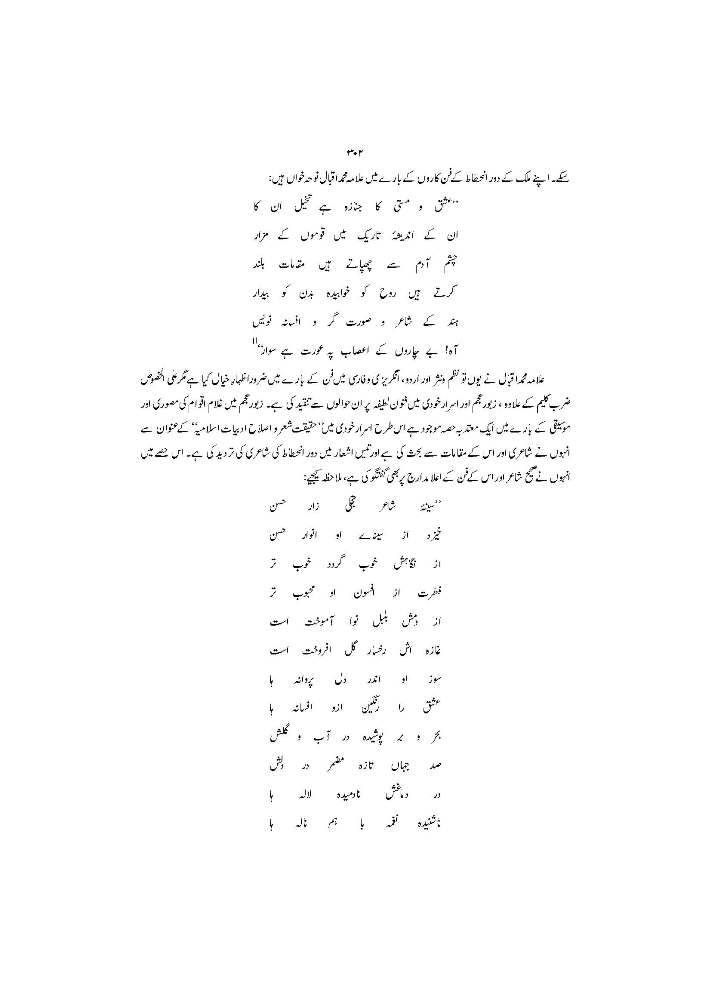 ۳۰۲
سکے۔ اپنے ملک کے دور انحطاط کے فن کاروں کے بارے میں علامہ محمد اقبال نوحہ خواں ہیں:
’’عشق و مستی کا جنازہ ہے تخیل ان کا
ان کے اندیشۂ تاریک میں قوموں کے مزار
چشم آدم سے چھپاتے ہیں مقامات بلند
کرتے ہیں روح کو خوابیدہ بدن کو بیدار
ہند کے شاعر و صورت گر و افسانہ نویس
آہ! بے چاروں کے اعصاب پہ عورت ہے سوار‘‘۱۱
علامہ محمد اقبال نے یوں تو نظم و نثر اور اردو، انگریزی و فارسی میں فن کے بارے میں ضرور اظہار خیال کیا ہے مگر علی الخصوص
ضرب کلیم کے علاوہ، زبور عجم اور اسرار خودی میں فنون لطیفہ پر ان حوالوں سے تنقید کی ہے۔ زبور عجم میں غلام اقوام کی مصوری اور
موسیقی کے بارے میں ایک معتدبہ حصہ موجود ہے اس طرح اسرار خودی میں ’’حقیقت شعر و اصلاح ادبیات اسلامیہ‘‘ کے عنوان سے
انہوں نے شاعری اور اس کے مقامات سے بحث کی ہے اور تیس اشعار میں دور انحطاط کی شاعری کی تردید کی ہے۔ اس حصے میں
انہوں نے صحیح شاعر اور اس کے فن کے اعلا مدارج پر بھی گفتگو کی ہے، ملاحظہ کیجیے:
’’سینۂ شاعر تجلی زار حسن
خیزد از سینائے او انوار حسن
از نگاہش خوب گردد خوب تر
فطرت از افسون او محبوب تر
از دمش بلبل نوا آموخت است
غازہ اش رخسار گل افروخت است
سوز او اندر دل پروانہ ہا
عشق را رنگین ازو افسانہ ہا
بحر و بر پوشیدہ در آب و گلش
صد جہان تازہ مضمر در دلش
در دماغش نادمیدہ لالہ ہا
ناشنیدہ نغمہ ہا ہم نالہ ہا